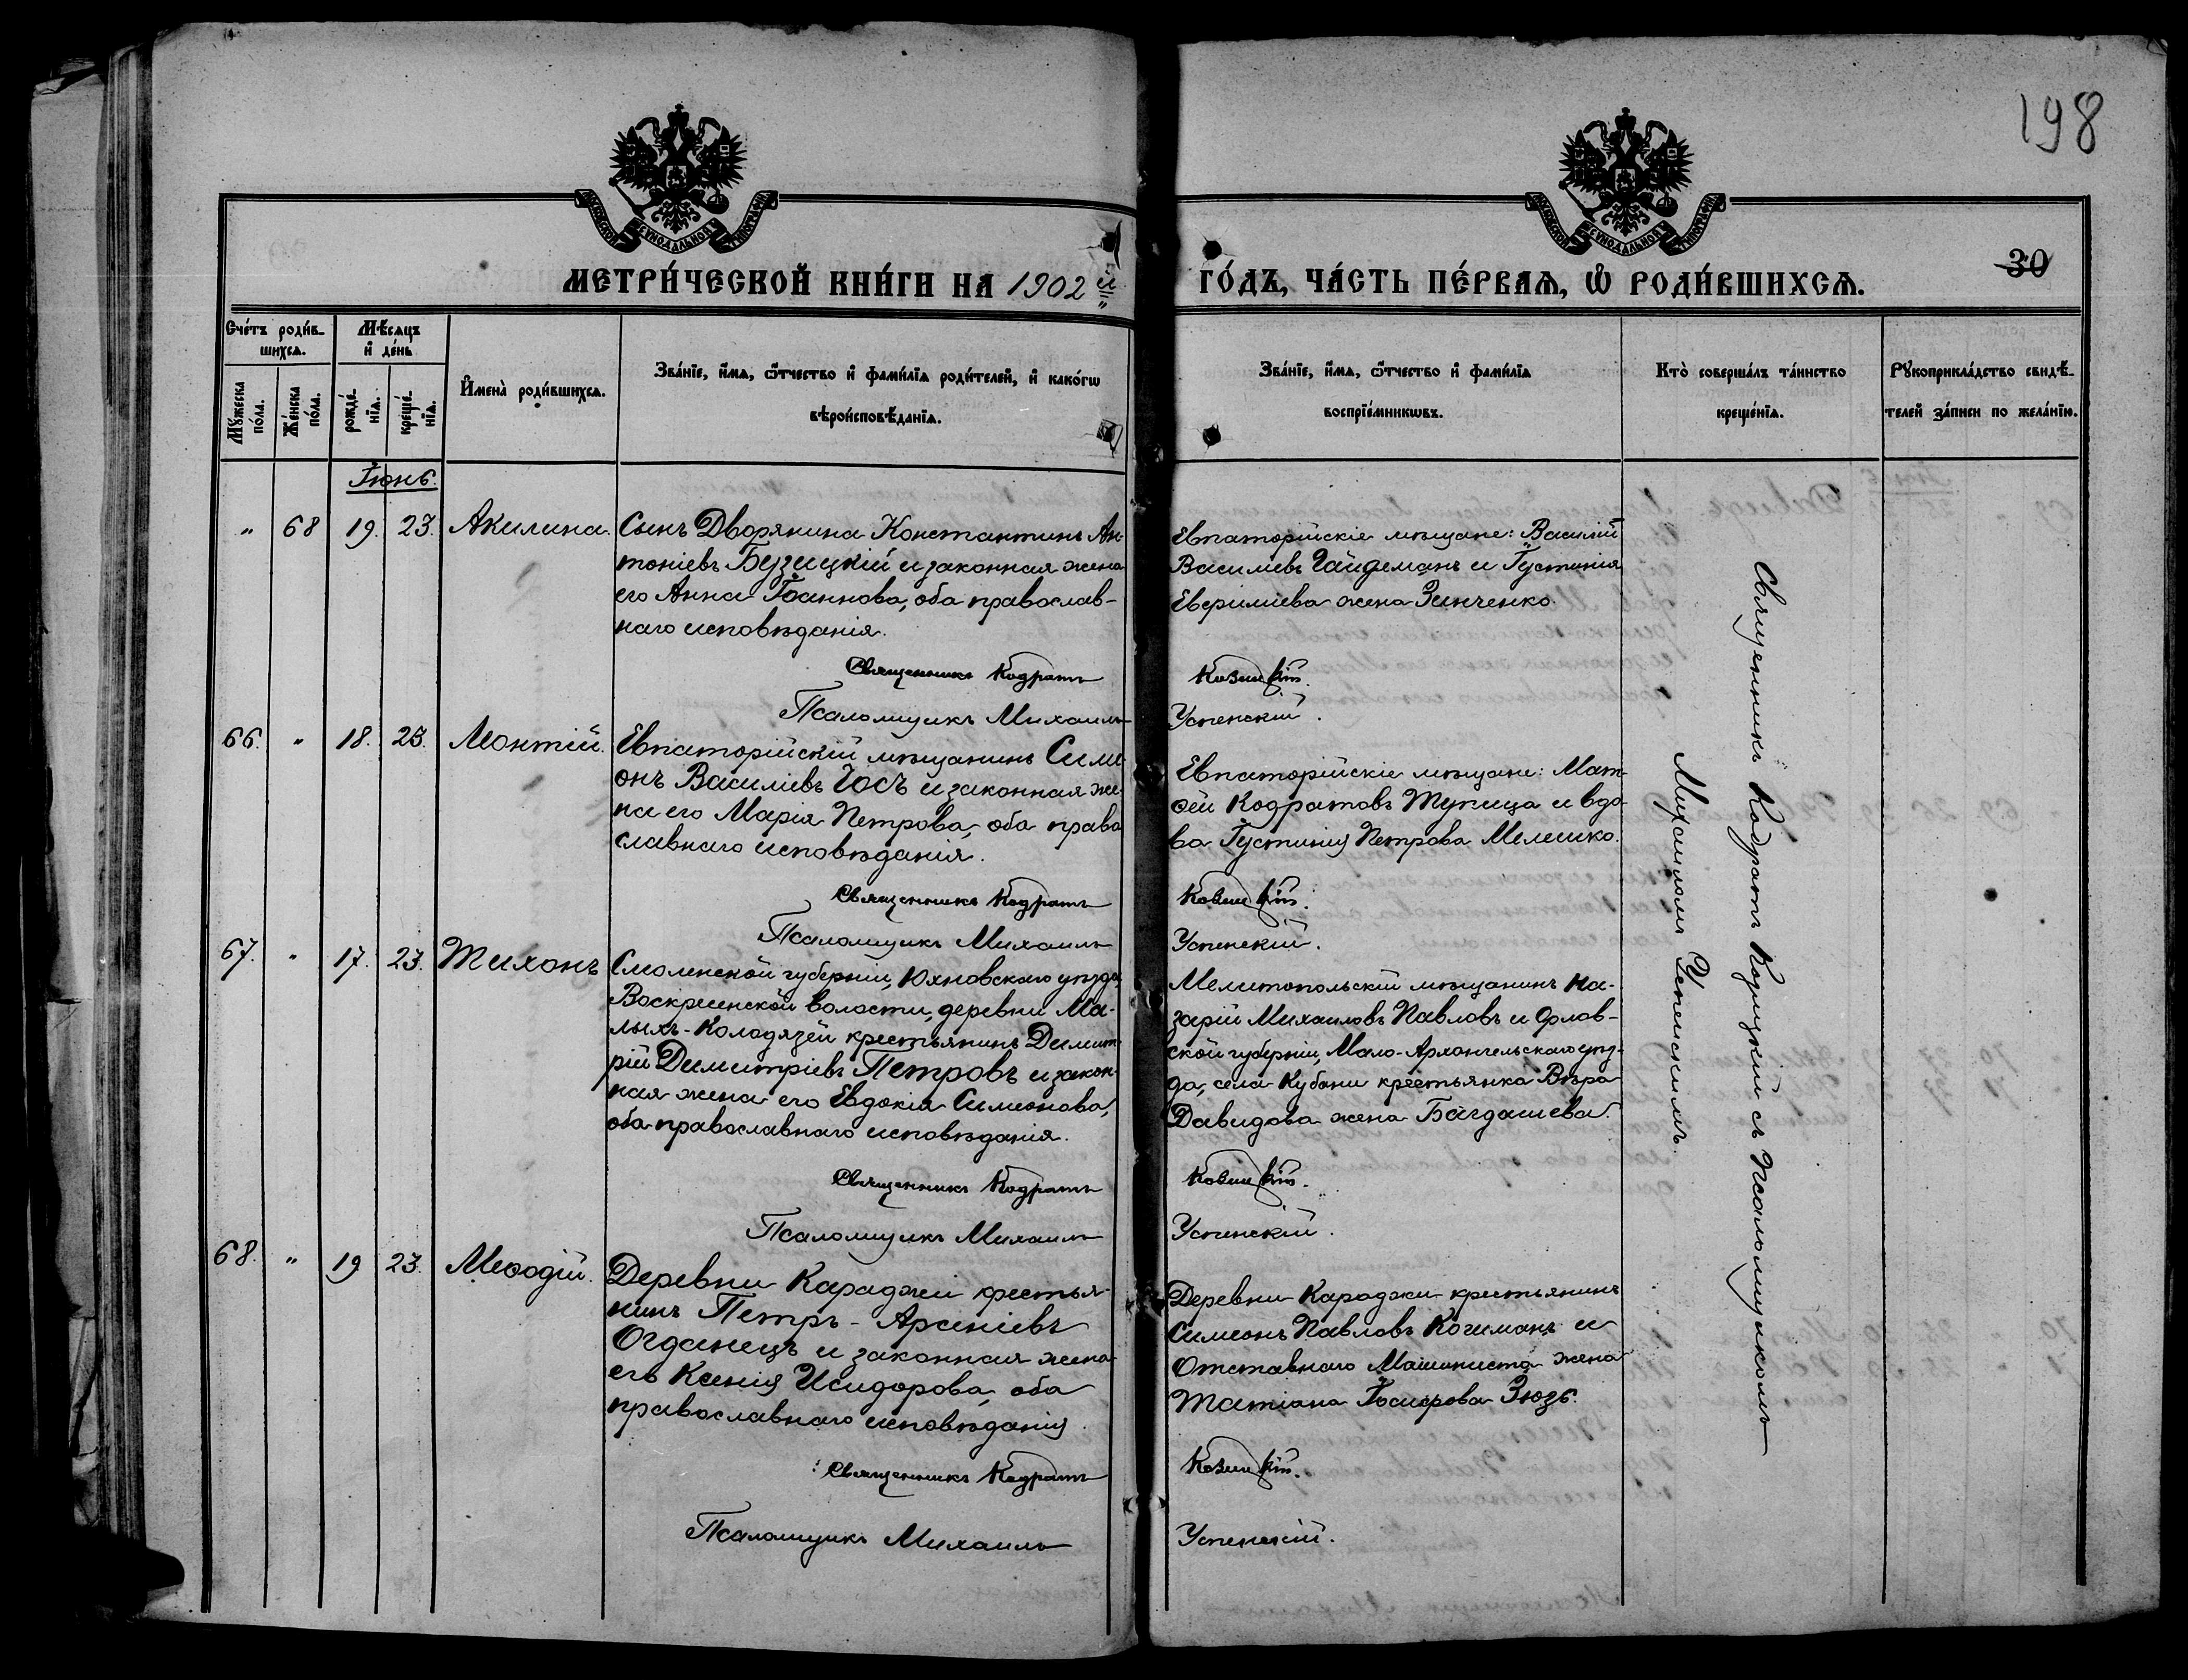 198
МОСКОВСКОЙ СѴНОДАЛЬНОЙ ТИПОГРАФІИ
МОСКОВСКОЙ СѴНОДАЛЬНОЙ ТИПОГРАФІИ
МЕТРИ́ЧЕСКОЙ КНИ́ГИ НА 1902 й
ГО́ДЪ, ЧА́СТЬ ПЕ́РВАѦ, Ѽ РОДИ́ВШИХСѦ.
30
Сче́тъ роди́в-
шихсѧ.
Мѣ́сѧцъ
и҆ де́нь
Мꙋ́жеска
по́ла.
Же́нска
по́ла.
рожде́-
нїѧ.
креще́-
нїѧ.
И҆мена̀ роди́вшихсѧ.
Зва́нїе, и҆́мѧ, ѻ҆́тчество и҆ фами́лїѧ роди́телей, и҆ како́гѡ
вѣроисповѣ́данїѧ.
Зва́нїе, и҆́мѧ, ѻ҆́тчество и҆ фами́лїѧ
воспрїе́мникѡвъ.
Кто̀ соверша́лъ та́инство
креще́нїѧ.
Рꙋкоприкла́дство свидѣ́-
телей за́писи по жела́нїю.
Іюнь.
" 68 19. 23. Акилина.
Сынъ Дворянина Константинъ Ан-
тоніевъ Бузицкій и законная жена
его Анна Іоаннова, оба православ-
наго исповѣданія.
Священникъ Кодратъ
Псаломщикъ Михаилъ
Евпаторійскіе мѣщане: Василій
Василіевъ Гайдеманъ и Іустинія
жена Зинченко.
Козицкій.
Успенскій.
66. " 18. 23. Леонтій.
Евпаторійскій мѣщанинъ Симе
онъ Василіевъ Госъ и законная же-
на его Марія Петрова, оба право
славнаго исповѣданія.
Священникъ Кодратъ
Псаломщикъ Михаилъ
Евпаторійскіе мѣщане: Мат-
ѳей Кодратовъ Тупица и вдо-
ва Іустинія Петрова Мелешко.
Козицкій.
Успенскій.
67. " 17. 23. Тихонъ
Смоленской губерніи, Юхновскаго уѣзда,
Воскресенской волости, деревни Ма-
лыхъ-Колодязей крестьянинъ Димит
рій Димитріевъ Петровъ и закон-
ная жена его Евдокія Симеонова,
оба православнаго исповѣданія.
Священникъ Кодратъ
Псаломщикъ Михаилъ
Мелитопольскій мѣщанинъ На-
зарій Михаиловъ Павловъ и Орлов-
ской губерніи, Мало-Архангельскаго уѣз-
да, села Кубани крестьянка Вѣра
Давидова жена Багдашева.
Козицкій.
Успенскій.
68. " 19 23. Меѳодій.
Деревни Караджи крестья-
нинъ Петръ - Арсеніевъ
Огданецъ и законная жена
его Ксенія Исидорова, оба
православнаго исповѣданія
Священникъ Кодратъ
Псаломщикъ Михаилъ
Деревни Караджи крестьянинъ
Симеонъ Павловъ Когиманъ и
Отставнаго Машиниста жена
Татіана Зюзь.
Козицкій.
Успенскій.
Священникъ Кодратъ Козицкій съ Псаломщикомъ
Михаиломъ Успенскимъ.